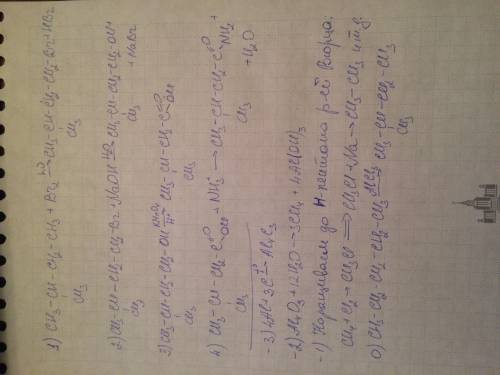 1) CH3-CH-CH2-CH3 + Br2 hν→ CH3-CH-CH2-CH2-Br + HBr
CH3 CH3
2) CH3-CH-CH2-CH2-Br + NaOH H2O→ CH3-CH-CH2-CH2-OH +
CH3 CH3 + NaBr
3) CH3-CH-CH2-CH2-OH KMnO4 H+ CH3-CH-CH2-C=O OH
CH3 CH3
4) CH3-CH-CH2-C=O OH + NH3 → CH3-CH-CH2-C=O NH2 +
CH3 CH3 + H2O
-3) 4Al + 3C t°→ Al4C3
-2) + 12H2O → 3CH4 + 4Al(OH)3
-1) Наращиваем до н-пентана р-ей Вюрца:
CH4 + Cl2 → CH3Cl ⇒ CH3Cl + Na → CH3-CH3 и т.д.
0) CH3-CH2-CH2-CH2-CH3 AlCl3 CH3-CH-CH2-CH3
CH3